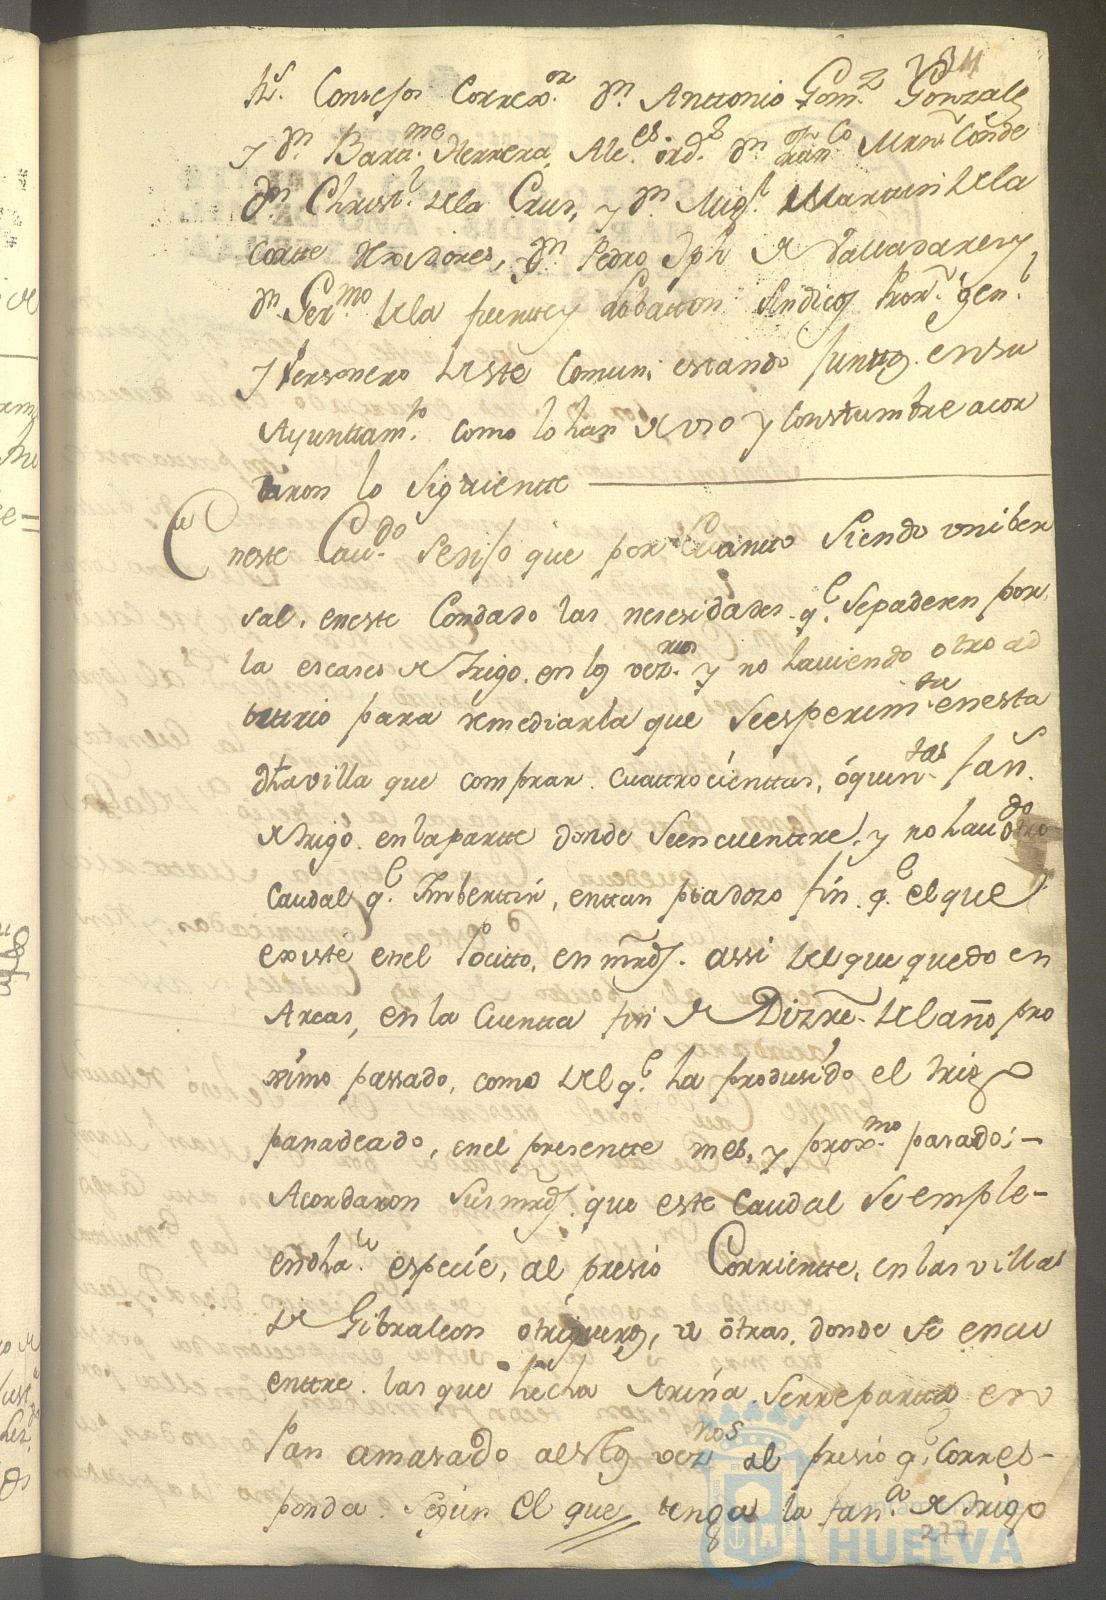 Rs. Consejos Correxor. Dn. Anttonio Gomz. Gonzalez
y Dn. Barme. Herrera, Alces. ordos. Dn. Franco Marn. Conde
Dn. Christl. de la Crus, y Dn. Migl. Martin de la
Cortte Rexidores, Dn. Pedro Jph de Valladares y
Dn. Germo. de la fuente y Lobatton Sindicos Pror. genl.
y Personero deste Comun, estando junttos en su
Ayunttamto. como lo han de uso y Constumbre acor
daron lo siguientte
En
neste Cavdo. se dijo que por quantto siendo univer
sal, en este Condado las nesesidades qe. se padesen por
la escases de trigo, en los vezinos y no haviendo otro ad
bittrio para remediarla que se esperimta. en esta
dha villa que comprar cuattrocienttas, ó quintas. fan.
de trigo en la partte donde se encuenttre, y no havdo otro
Caudal qe. Imberttir, en ttan piadozo fin qe. el que
existe en el Positto, en mrds. assi del que quedo en
Arcas, en la Cuentta fin de Dizre. del año pro
ximo passado, como del qe. ha produsido el trigo
panadeado, en el presentte mes, y proxmo. pasado; -
Acordaron sus mrds. que este Caudal se emple-
en dha. especie, al presio Corrientte, en las villas
de Gibraleon otrigueros, u otras, donde se encu
enttre las que hecha Arina se repartta en
Pan amasado a estos veznos al presio qe. Corres-
ponda segun el que tenga la fana. de trigo
277
Ayuntamiento de
HUELVA